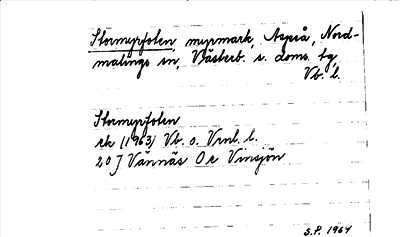 Stormyrfoten, myrmark, Aspeå, Nord-
malings sn, Västerb. s. doms. tg
Vb. l.
Stormyrfoten
ek (1963) Vb. o. Vrnl. l.
20 J Vännäs Or Vinsjön
S.P. 1964